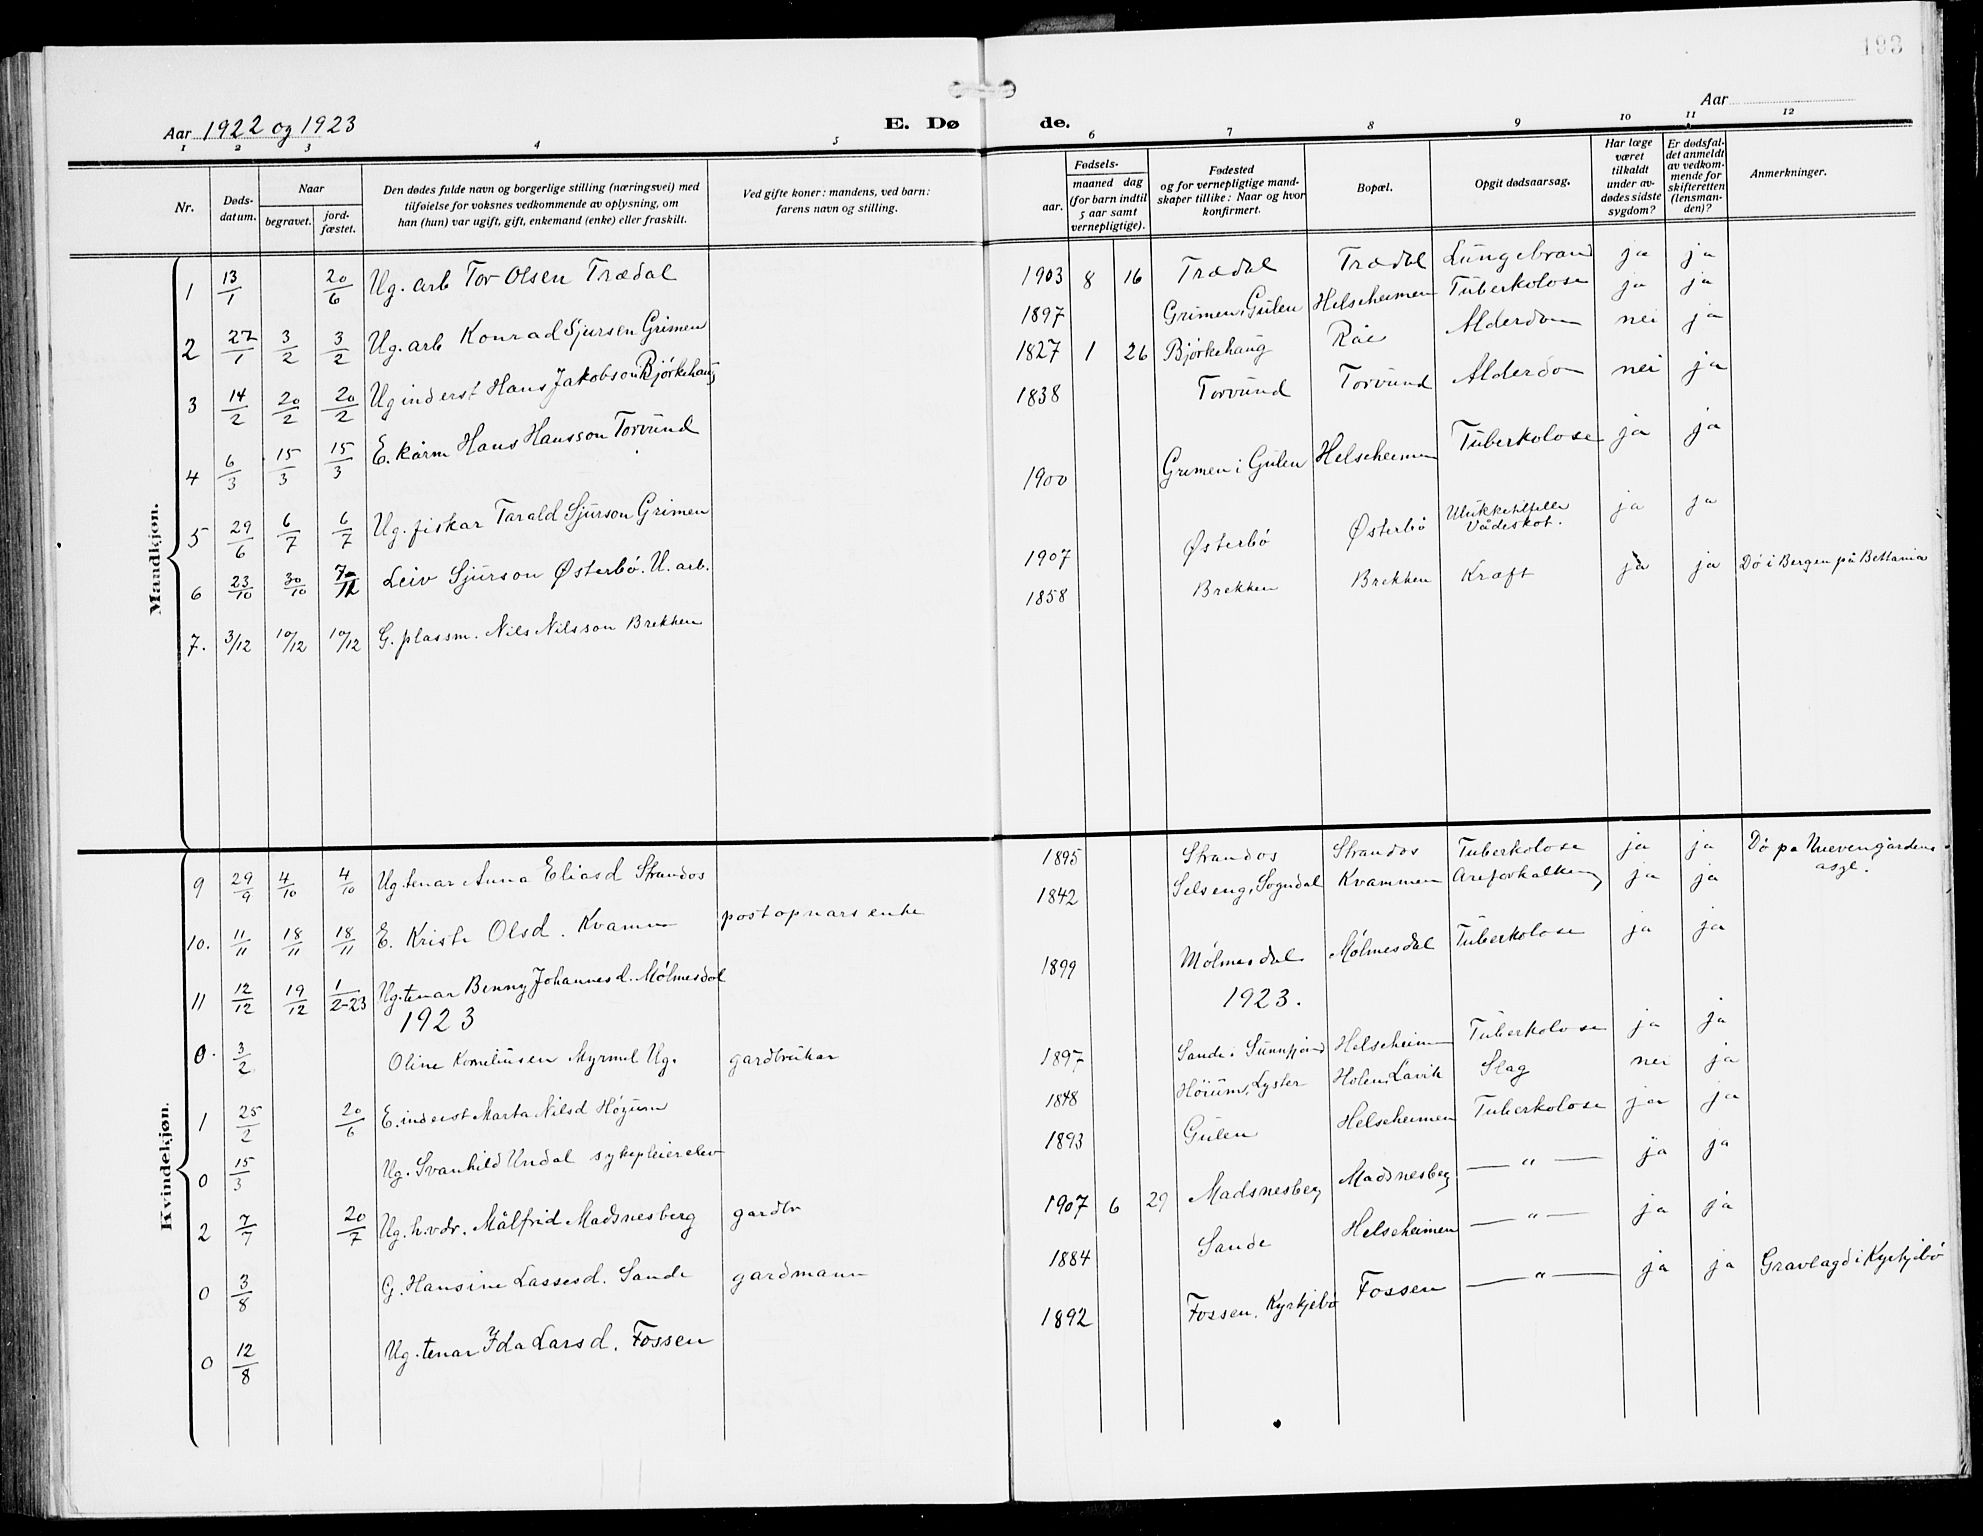 193
Aar 1922 og 1923
E. Døde.
Aar
1 2 3 4 5 6 7 8 9 10 11 12
Nr.
Døds-
datum.
Naar
begravet.
jord-
fæstet.
Den dødes fulde navn og borgerlige stilling (næringsvei) med
tilføielse for voksnes vedkommende av oplysning, om
han (hun) var ugift, gift, enkemand (enke) eller fraskilt.
Ved gifte koner: mandens, ved barn:
farens navn og stilling.
Fødsels-
aar.
maaned dag
(for barn indtil
5 aar samt
vernepligtige).
Fødested
og for vernepligtige mand-
skaper tillike: Naar og hvor
konfirmert.
Bopæl.
Opgit dødsaarsag.
Har læge
været
tilkaldt
under av-
dødes sidste
sygdom?
Er dødsfal-
det anmeldt
av vedkom-
mende for
skifteretten
(lensman-
den)?
Anmerkninger.
Mandkjøn.
1 13/1 20/6 Ug. arb Tor Olsen Trædal 1903 8 16 Trædal Trædal Lungebrand ja ja
2 27/1 3/2 3/2 Ug. arb Konrad Sjursen Grimen 1897 Grimen i Gulen Helseheimen Tuberkolose ja ja
3 14/2 20/2 20/2 Ug inderst Hans Jakobson Bjørkehaug 1827 1 26 Bjørkehaug Råe Alderdom nei ja
4 6/3 15/3 15/3 E. kårm Hans Hansson Torvund 1838 Torvund Torvund Alderdom nei ja
5 29/6 6/7 6/7 Ug. fiskar Tarald Sjurson Grimen 1900 Grimen i Gulen Helseheimen Tuberkolose ja ja
6 23/10 30/10 Leiv Sjurson Østerbö. U. arb. 1907 Østerbö Østerbö Ulukketilfelle Vådeskot. ja ja
7. 3/12 10/12 10/12 G. plassm. Nils Nilsson Brekken 1858 Brekken Brekken Kræft ja ja Dö i Bergen på Bettania
Kvindekjøn.
9 29/9 4/10 4/10 Ug tenar Anna Eliasd Strandos 1895 Strandos Strandos Tuberkolose ja ja Dö på asyl.
10. 11/11 18/11 18/11 E. Kristi Olsd. Kvamm postopnars enke 1842 Selseng, Sogndal Kvammen Areforkalkeng ja ja
11 12/12 19/12 1/2-23 Ug. tenar Benny Johannesd. Mölmesdal 1899 Mölmesdal Mölmesdal Tuberkolose ja ja
1923 1923.
0. 3/2 Oline Korneliusen Myrmel Ug. gardbrukar 1897 Sande i Sunnfjord Helseheim Tuberkolose ja ja
1 25/2 20/6 E. inderst Marta Nilsd 1848 Lyster Holen, Lavik Slag nei ja
0 15/3 Ug. Svanhild Undal sykepleierelev 1893 Gulen Helseheimen Tuberkolose ja ja
2 7/7 20/7 Ug. h.v.dr. Målfrid Madsnesberg gardbr 1907 6 29 Madsnesberg Madsnesberg — " — ja ja
0 3/8 G. Hansine Lassesd. Sande gardmann 1884 Sande Helseheimen — " — ja ja
0 12/8 Ug. tenar Ida Larsd. Fossen 1892 Fossen, Kyrkjebö Fossen — " — ja ja Gravlagd i Kyrkjebö